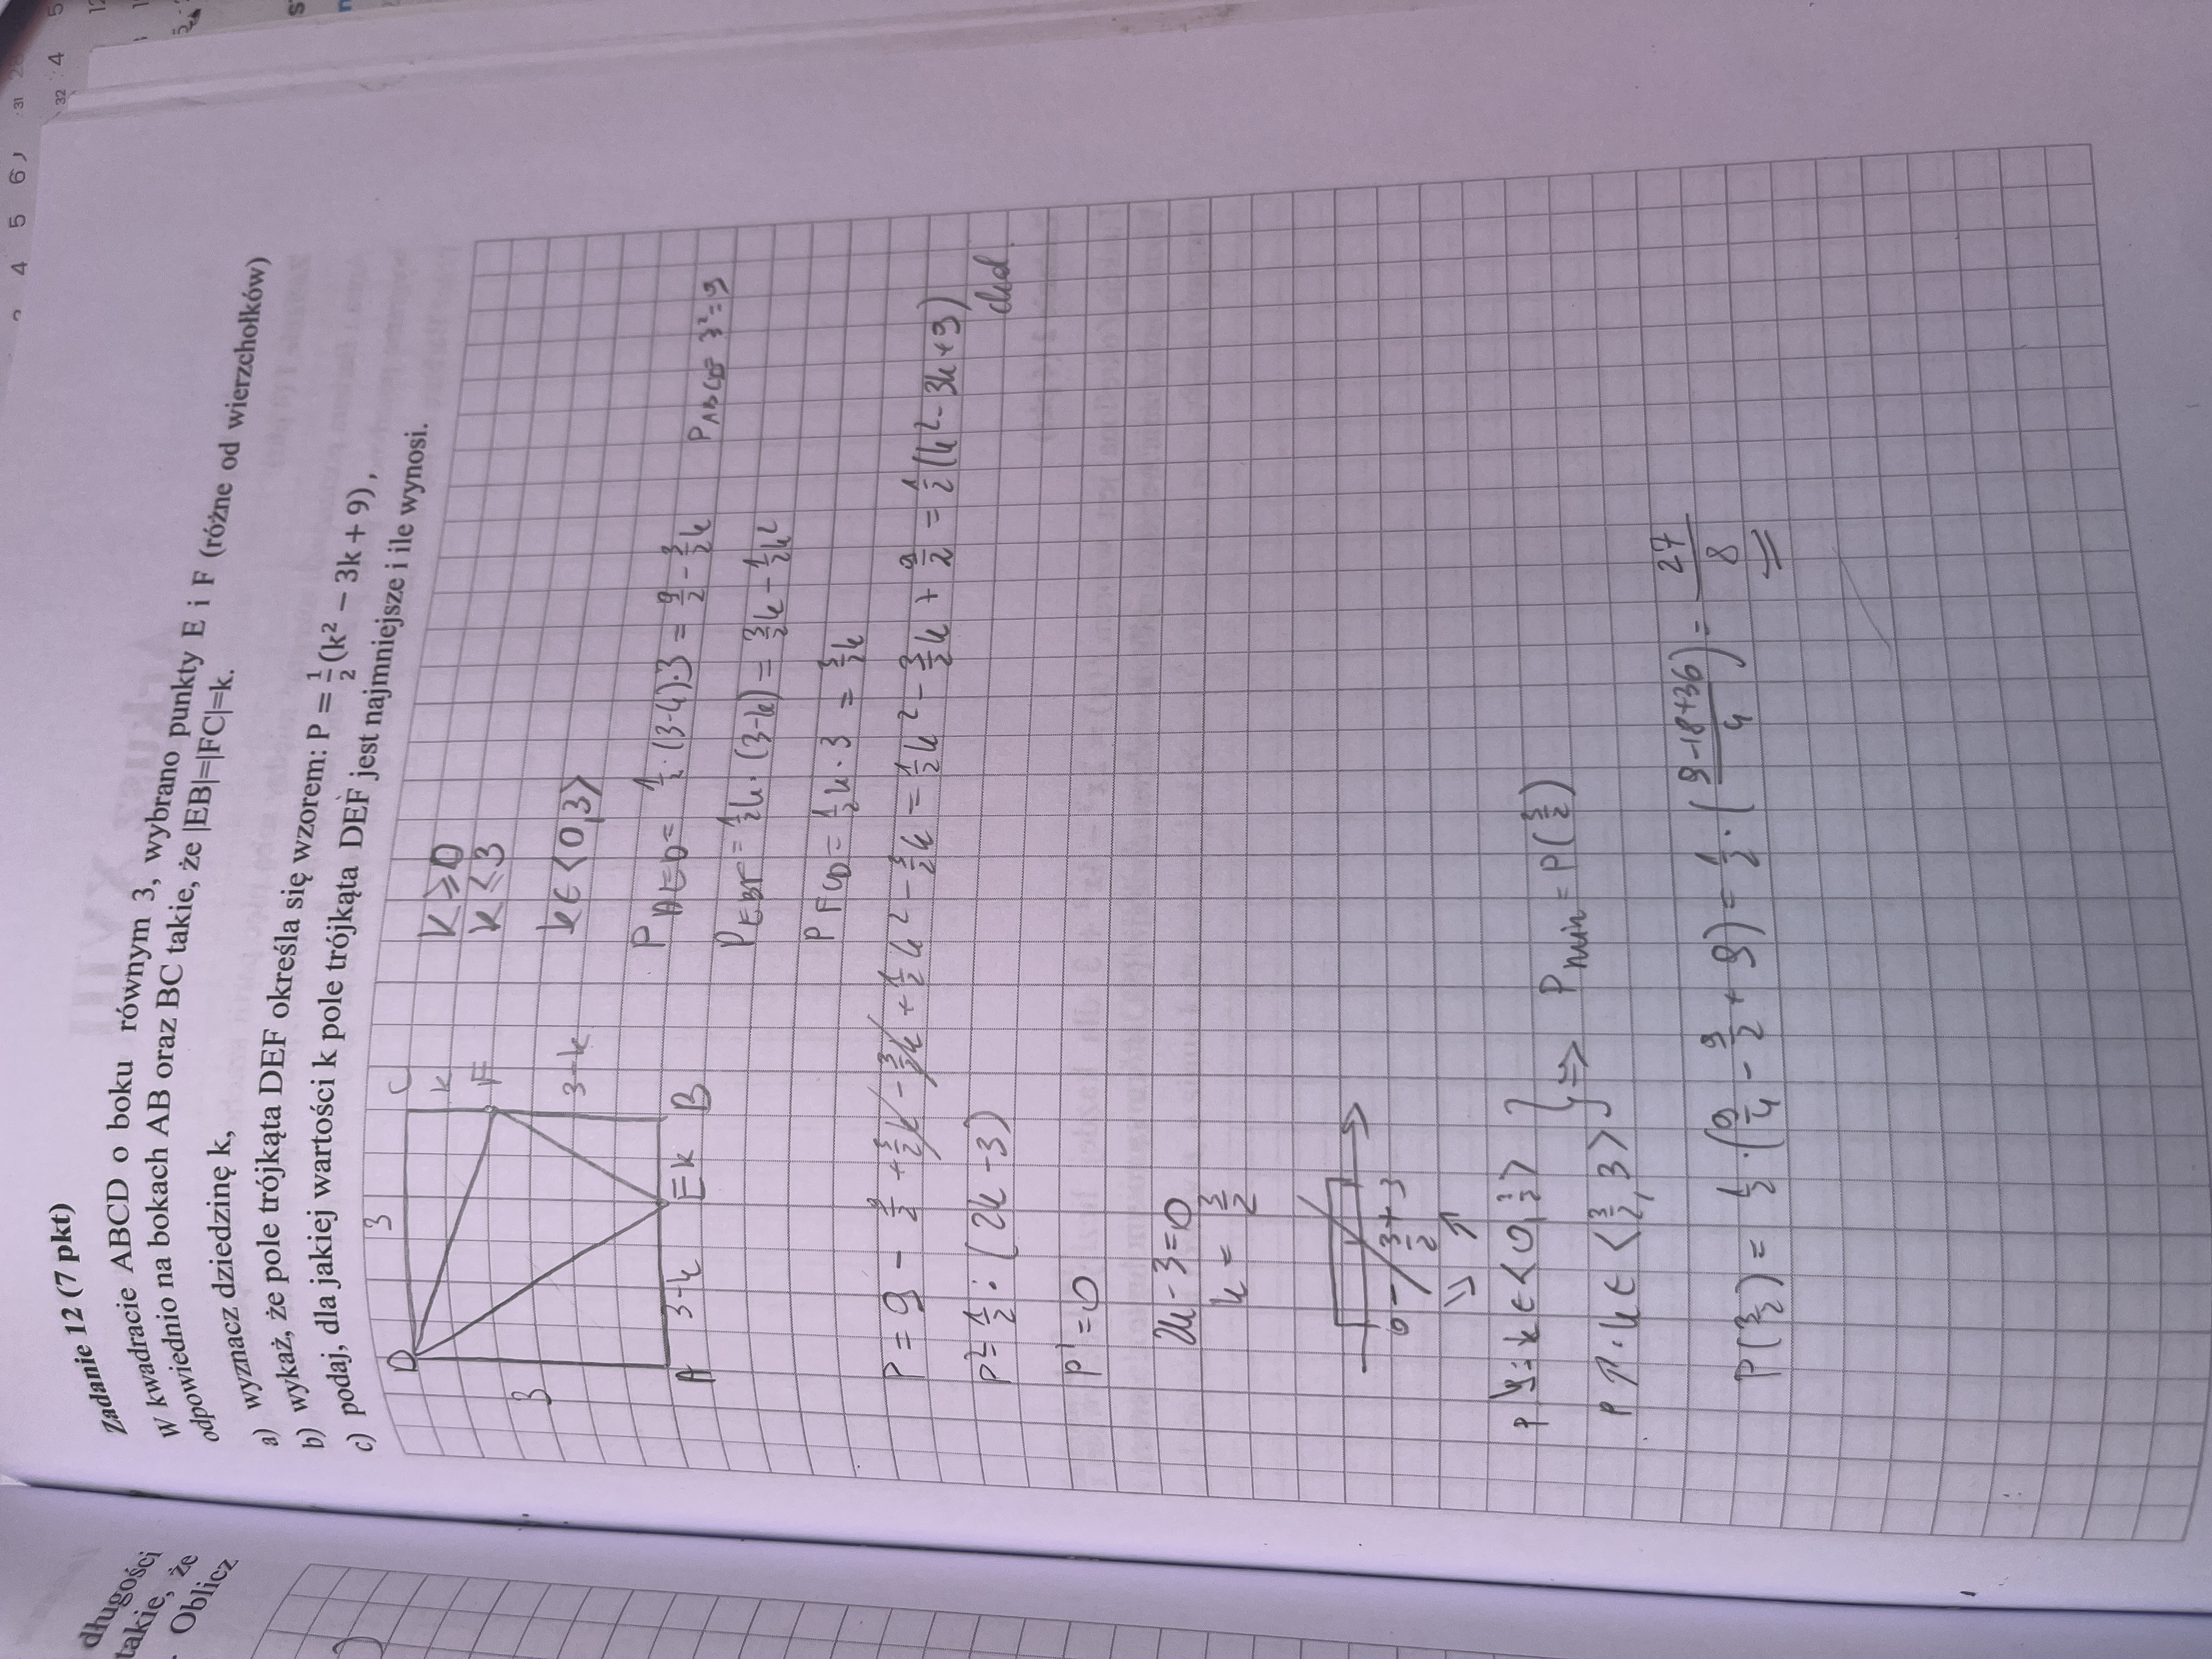 Zadanie 12 (7 pkt)
W kwadracie ABCD o boku równym 3, wybrano punkty E i F (różne od wierzchołków)
odpowiednio na bokach AB oraz BC takie, że |EB|=|FC|=k.
a) wyznacz dziedzinę k,
b) wykaż, że pole trójkąta DEF określa się wzorem: P = 1/2 (k² − 3k + 9),
c) podaj, dla jakiej wartości k pole trójkąta DEF jest najmniejsze i ile wynosi.
D 3 C
k
F
3
3-k
A 3-k E k B
k ≥ 0
k ≤ 3
k ∈ <0,3>
P AED = 1/2 · (3-k)·3 = 9/2 - 3/2 k
P ABCD = 3² = 9
P EBF = 1/2 k · (3-k) = 3/2 k - 1/2 k²
P FCD = 1/2 k · 3 = 3/2 k
P = 9 - 9/2 + 3/2 k - 3/2 k + 1/2 k² - 3/2 k = 1/2 k² - 3/2 k + 9/2 = 1/2 (k² - 3k + 9)
ckd.
P' = 1/2 · (2k - 3)
P' = 0
2k - 3 = 0
k = 3/2
0 - 3/2 + 3
↘ ↗
P ↘: k ∈ <0, 3/2> } => P min = P(3/2)
P ↗: k ∈ <3/2, 3>
P(3/2) = 1/2 · (9/4 - 9/2 + 9) = 1/2 · (9-18+36 / 4) = 27/8
długości
takie, że
Oblicz
4 5 6)
31
32 4 5